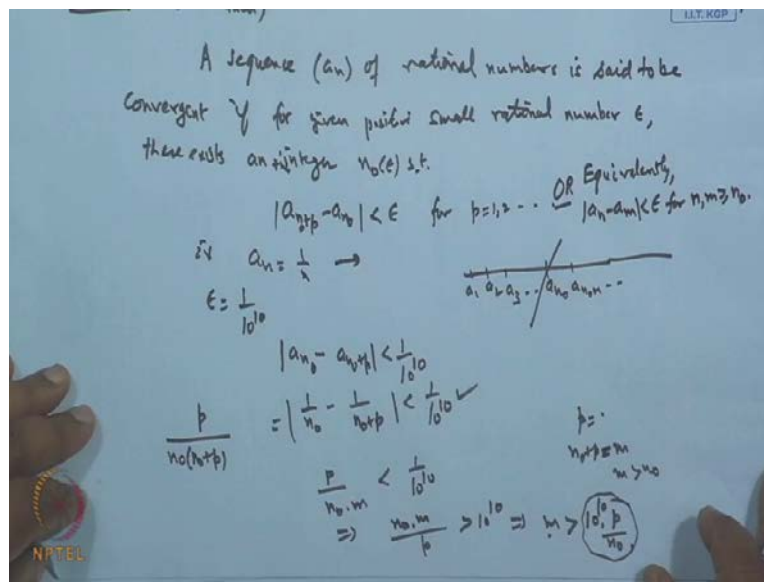 I.I.T. KGP
A sequence (an) of rational numbers is said to be
Convergent if for given positive small rational number ε,
there exists an +ve integer n₀(ε) s.t.
|a_{n₀+p} - a_{n₀}| < ε for p=1,2 ---- OR Equivalently,
|an - am| < ε for n,m ≥ n₀.
an = 1/n →
a₁ a₂ a₃ .. a_{n₀} ..
ε = 1/10^10
|a_{n₀} - a_{n₀+p}| < 1/10^10
p/n₀(n₀+p) = |1/n₀ - 1/n₀+p| < 1/10^10 ✓
p = .
n₀+p = m
m > n₀
p/n₀.m < 1/10^10
⇒ n₀.m/p > 10^10 ⇒ m > 10^10.p/n₀
NPTEL